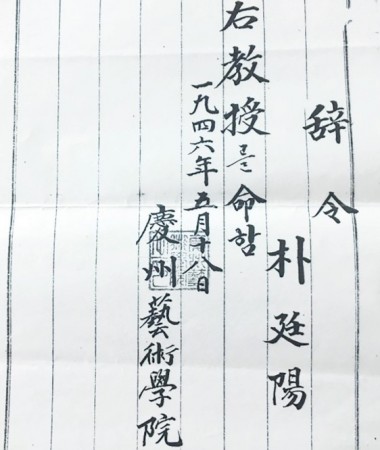 辞令
朴廷陽
右教授를命함
一九四六年五月十八日
慶州藝術學院